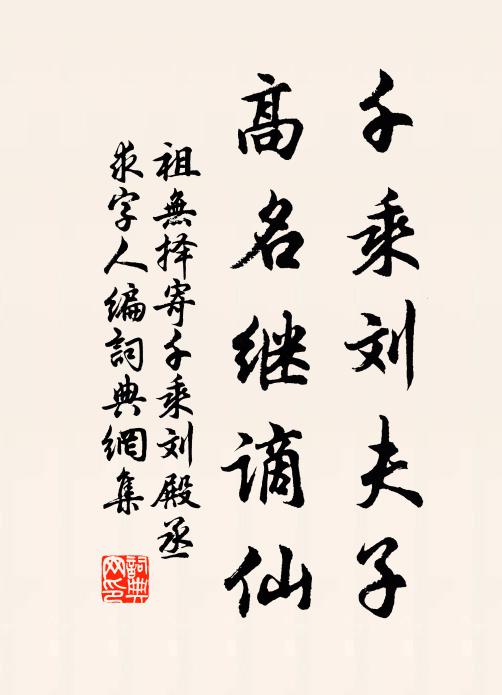 千乘刘夫子
高名继谪仙
祖無择寄千乘刘殿丞
求字人编詞典網集
詞典
网印